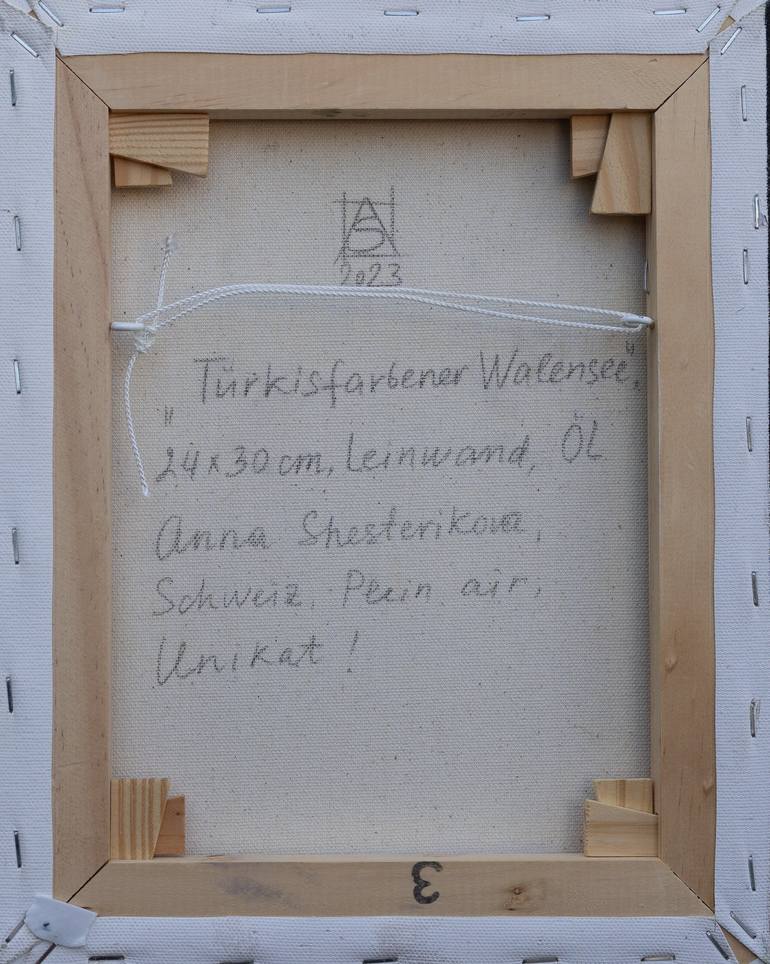 2023
„Türkisfarbener Walensee",
24x30cm, Leinwand, Öl
Anna Shesterikova,
Schweiz, Plein air,
Unikat!
3